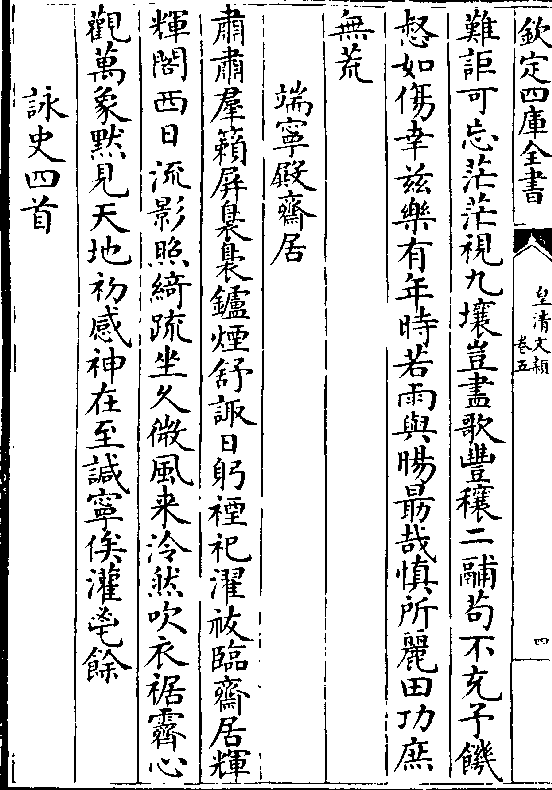 欽定四庫全書
皇清文穎
卷五
四
難詎可忘茫茫視九壤豈盡歌豐穰二鬴苟不充予饑
惄如傷幸兹樂有年時若雨與暘朂哉慎所麗田功庶
無荒
端寧殿齋居
肅肅羣籟屏裊裊鑪煙舒諏日躬禋祀濯祓臨齋居輝
輝閣西日流影照綺疏坐久微風来泠然吹衣裾齋心
觀萬象黙見天地初感神在至諴寧俟灌鬯餘
詠史四首